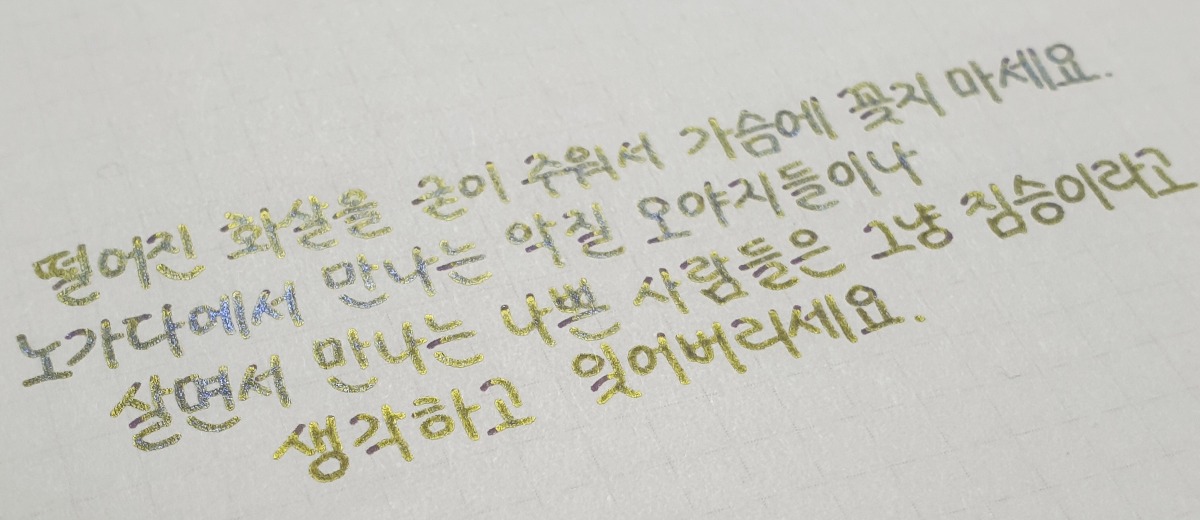 떨어진 화살을 굳이 주워서 가슴에 꽂지 마세요.
노가다에서 만나는 악질 오야지들이나
살면서 만나는 나쁜 사람들은 그냥 짐승이라고
생각하고 잊어버리세요.